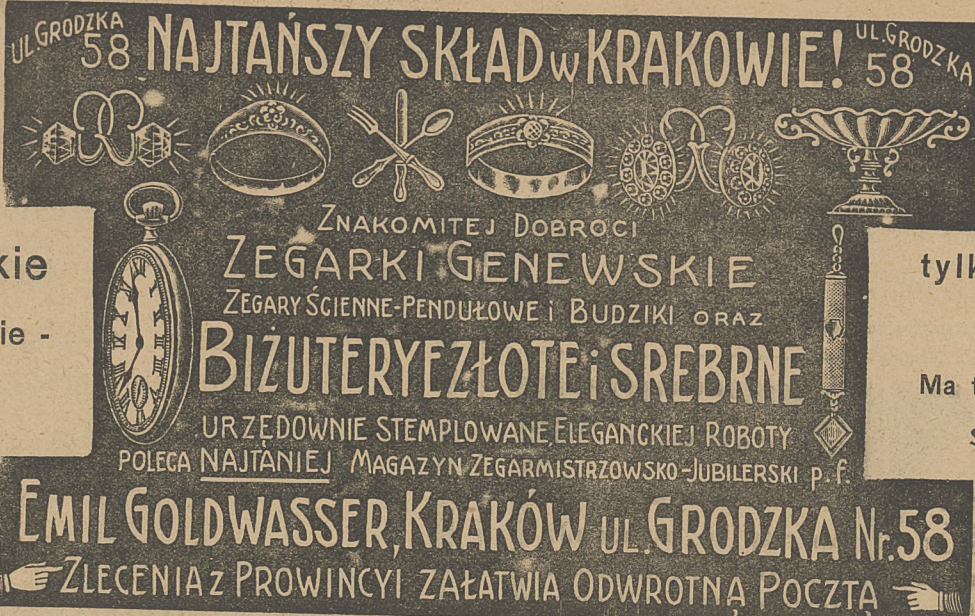 UL. GRODZKA 58 NAJTAŃSZY SKŁAD w KRAKOWIE! UL. GRODZKA 58
ZNAKOMITEJ DOBROCI
ZEGARKI GENEWSKIE
ZEGARY ŚCIENNE-PENDUŁOWE i BUDZIKI ORAZ
BIŻUTERYE ZŁOTE i SREBRNE
URZĘDOWNIE STEMPLOWANE, ELEGANCKIEJ ROBOTY
POLECA NAJTANIEJ MAGAZYN ZEGARMISTRZOWSKO-JUBILERSKI p. f.
EMIL GOLDWASSER, KRAKÓW UL. GRODZKA Nr. 58
ZLECENIA z PROWINCYI ZAŁATWIA ODWROTNĄ POCZTĄ
kie
ie -
tyl
Ma